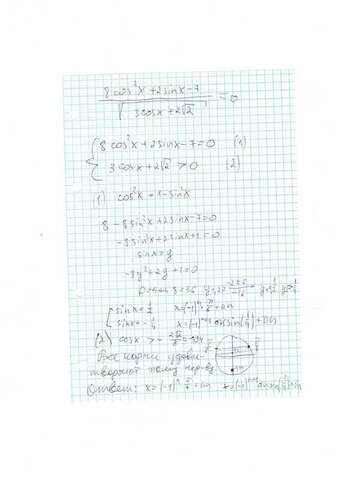 8cos²x+2sinx-7
―――――――― =0
√3cosx+2√2
{ 8cos²x+2sinx-7=0 (1)
3cosx+2√2 >0 (2)
(1) cos²x=1-sin²x
8-8sin²x+2sinx-7=0
-8sin²x+2sinx+1=0
sinx=y
-8y²+2y+1=0
[ sinx=1/2 x=(-1)ⁿ π/6+πn
sinx=-1/4 x=(-1)ⁿ⁺¹ arcsin(1/4)+πn
(2) cosx > -2√2/3
Все корни удовле-
творяют этому
Ответ: x=(-1)ⁿ π/6+πn x=(-1)ⁿ⁺¹ arcsin(1/4)+πn